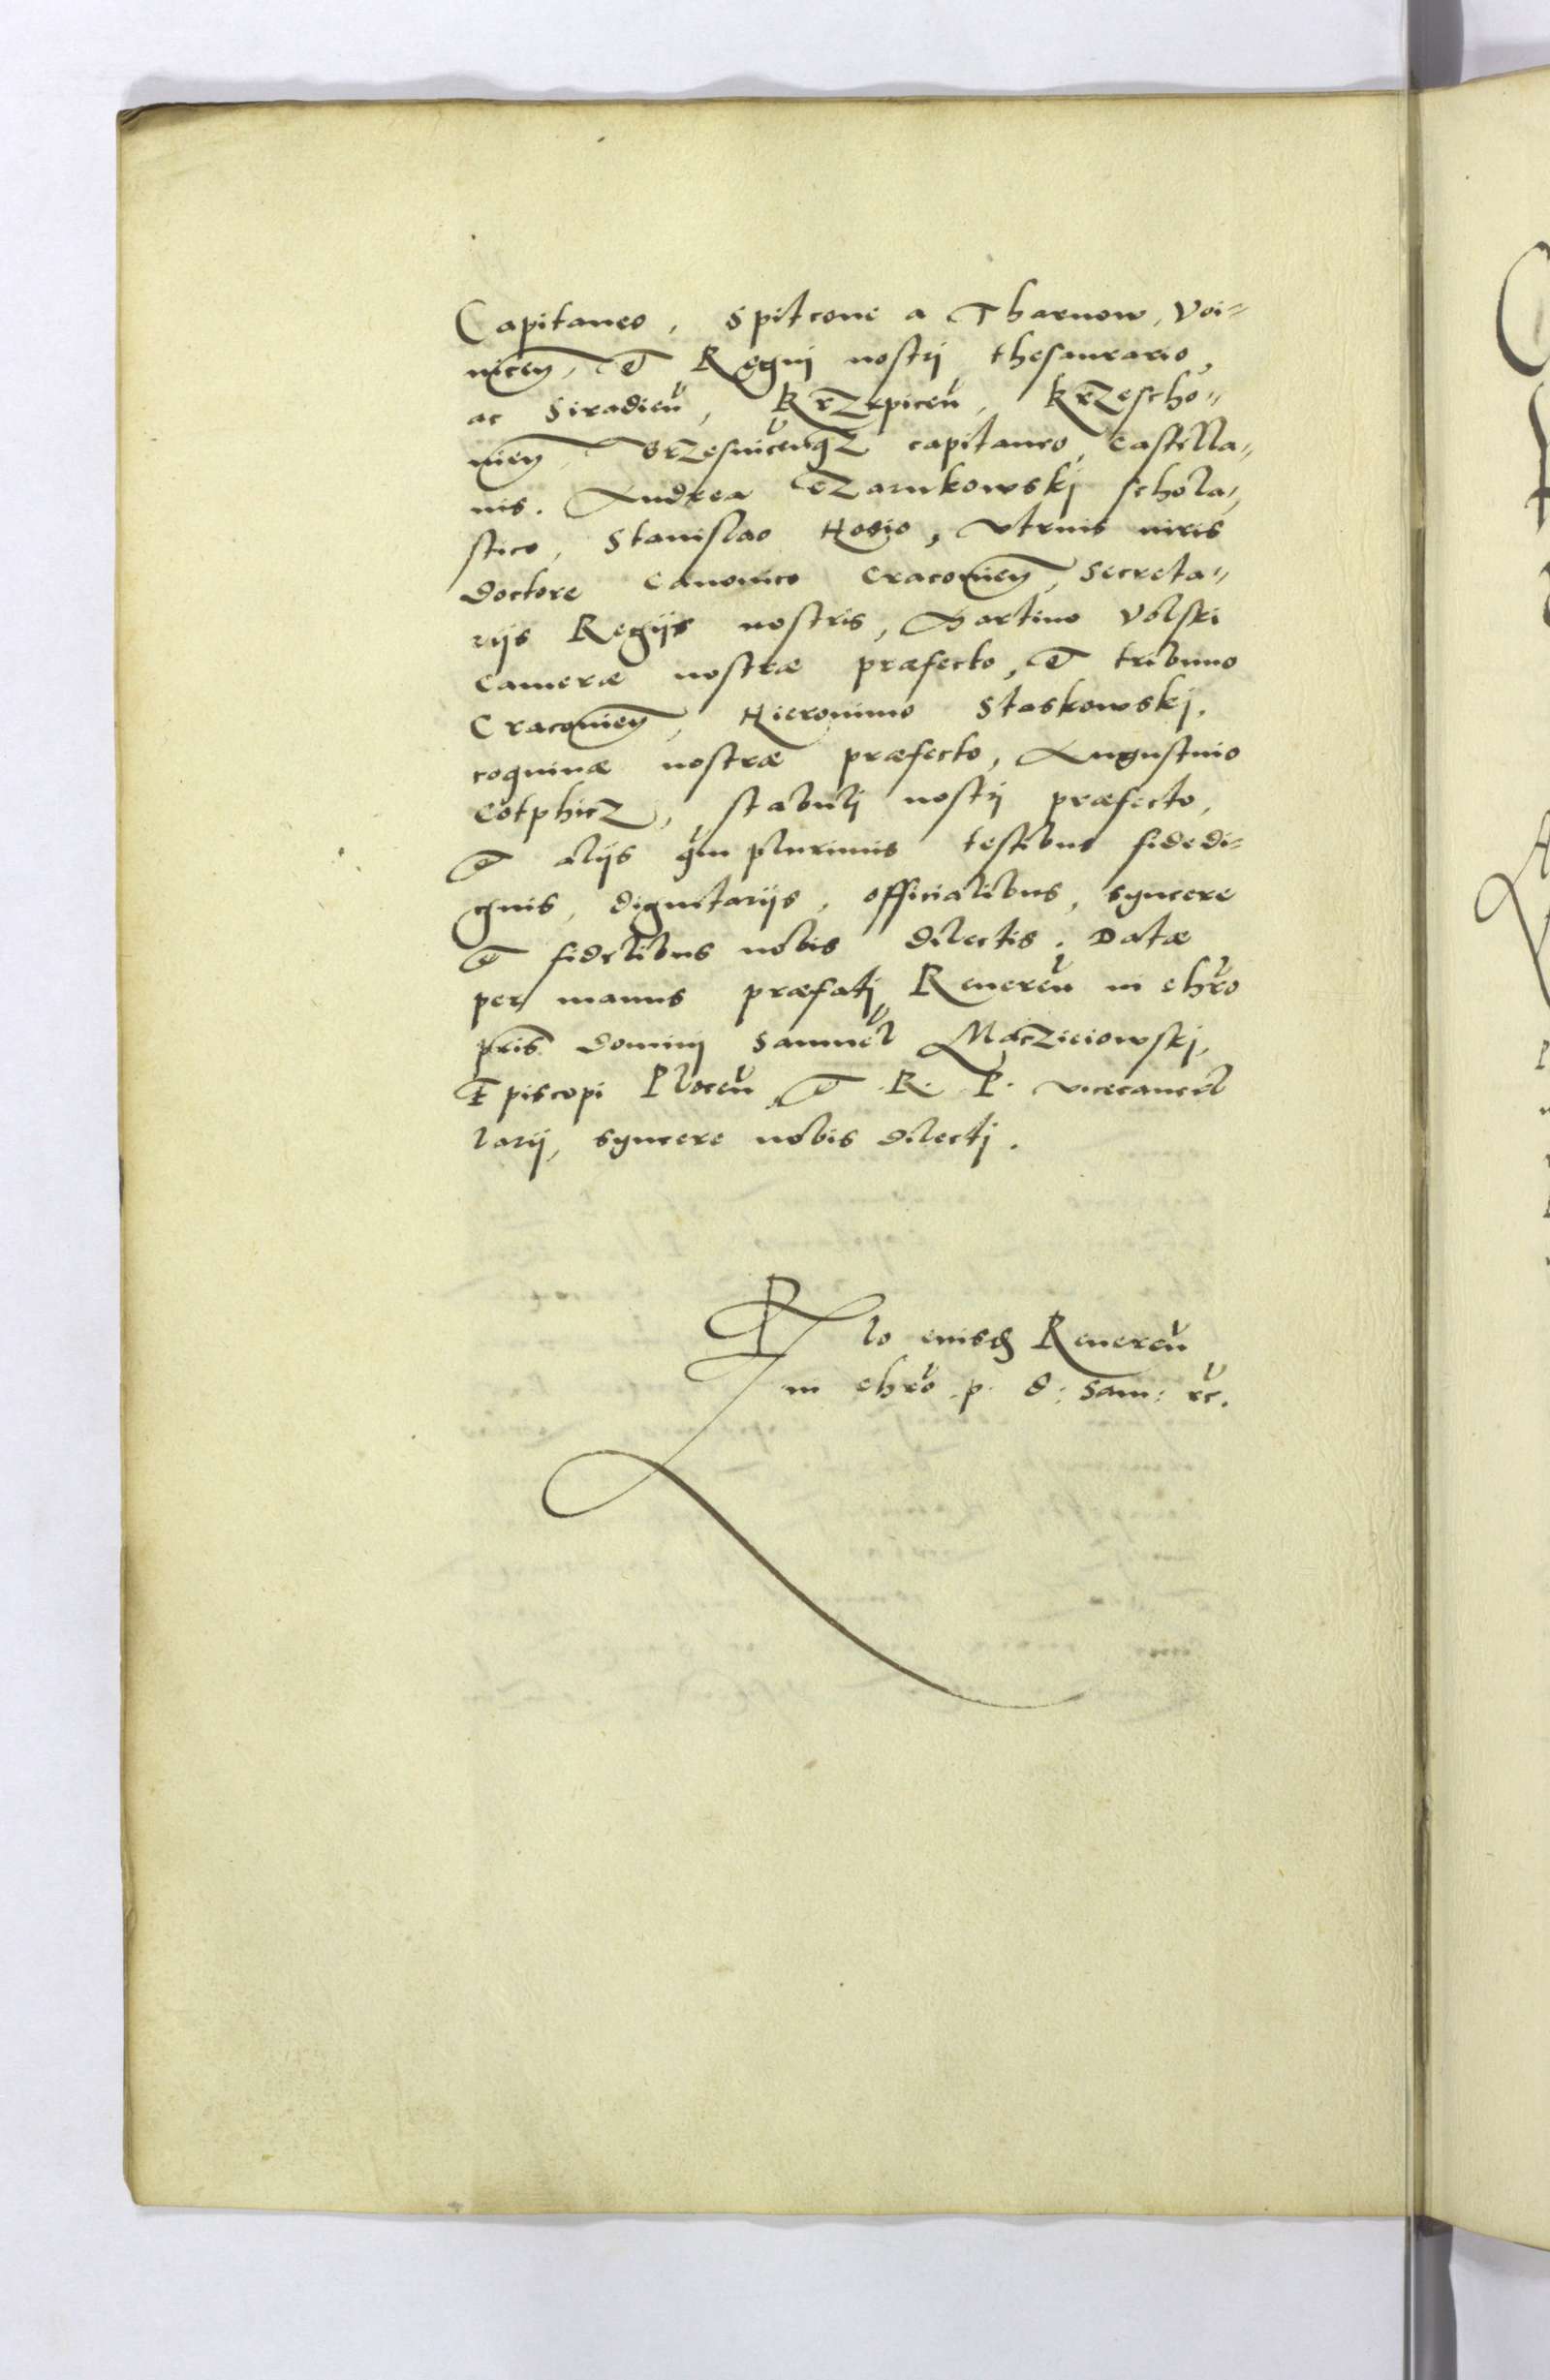 Capitaneo, Spitcone a Tharnow, Voi=
niceñ, et Regni nostrj thesaurario,
ac Siradieñ, Krzepiceñ, Krzescho=
uieñ, Brzesniceñqz capitaneo, Castella=
nis. Andrea Czarnkowskj schola,
stico, Stanislao Hosio, vtrius iuris
doctore Canonico Cracouieñ, Secreta=
rijs Regijs nostris, Martino Volski
Cameræ nostræ præfecto, et tribuno
Cracouieñ, Hieronimo Staskowskj.
coquinæ nostræ præfecto, Augustino
Cotphicz, stabulj nostrj præfecto,
et alijs qm̃ plurimis testibus fidedi=
gnis, dignitarijs, officialibus, syncere
et fidelibus nobis dilectis. Datæ
per manus præfatj Reuereñ in chrõ
pris̃ dominj Samuel Maczieiowskj,
Episcopi Ploceñ et R. P. vicecancel
larij, syncere nobis dilectj.
Rlo eiusd Reuereñ
in chrõ .p. d: Sam: rc̃.